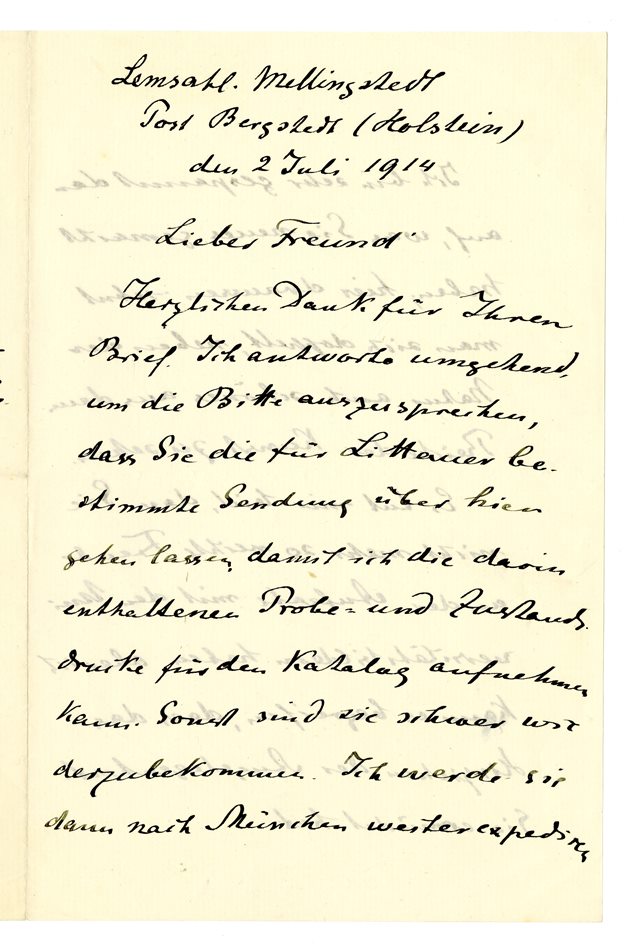 Lemsahl. Mellingstedt
Post Bergstedt (Holstein)
den 2 Juli 1914
Lieber Freund
Herzlichen Dank für Ihren
Brief. Ich antworte umgehend,
um die Bitte auszusprechen,
dass Sie die für Littauer be-
stimmte Sendung über hier
gehen lassen, damit ich die darin
enthaltenen Probe= und Zustands-
drucke für den Katalog aufnehmen
kann. Sonst sind sie schwer wie
derzubekommen. Ich werde sie
dann nach München weiterexpediren